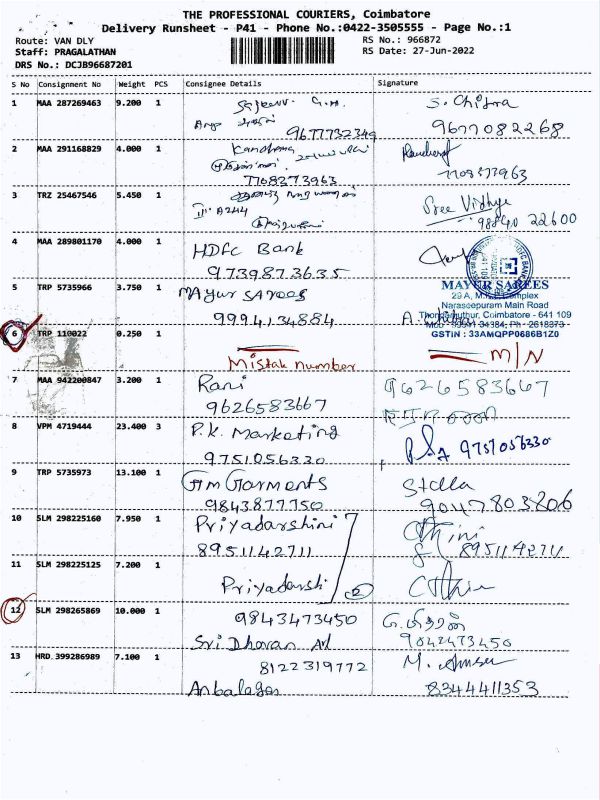 THE PROFESSIONAL COURIERS, Coimbatore
Delivery Runsheet - P41 - Phone No.:0422-3505555 - Page No.:1
Route: VAN DLY
RS No.: 966872
Staff: PRAGALATHAN
RS Date: 27-Jun-2022
DRS No.: DCJB96687201
S No Consignment No Weight PCS Consignee Details Signature
1 MAA 287269463 9.200 1
S. Chitra
9677732349 9677082268
2 MAA 291168829 4.000 1
7708373963 7708373963
3 TRZ 25467546 5.450 1
Sree Vidhya
98840 22600
4 MAA 289801170 4.000 1 HDFC Bank
9739873635
5 TRP 5735966 3.750 1 Mayur sarees
9994134884
MAYUR SAREES
29 A, M.N.R. Complex
Naraseepuram Main Road
Thondamuthur, Coimbatore - 641 109
Mob : 99941 34384, Ph : 2618373
GSTIN : 33AMQPP0686B1Z0
6 TRP 110022 0.250 1
Mistak number M/N
7 MAA 942200847 3.200 1 Rani 9626583667
9626583667
8 VPM 4719444 23.400 3 P.K. Marketing
9751056330 9751056330
9 TRP 5735973 13.100 1 Gm Garments Stella
9843877750 9047803806
10 SLM 298225160 7.950 1 Priyadarshini
8951142711 8951142711
11 SLM 298225125 7.200 1
Priyadarshi 2
12 SLM 298265869 10.000 1 9843473450
Sri Dharan 9042473450
13 HRD 399286989 7.100 1 8122319772
Anbalagan 8344411353